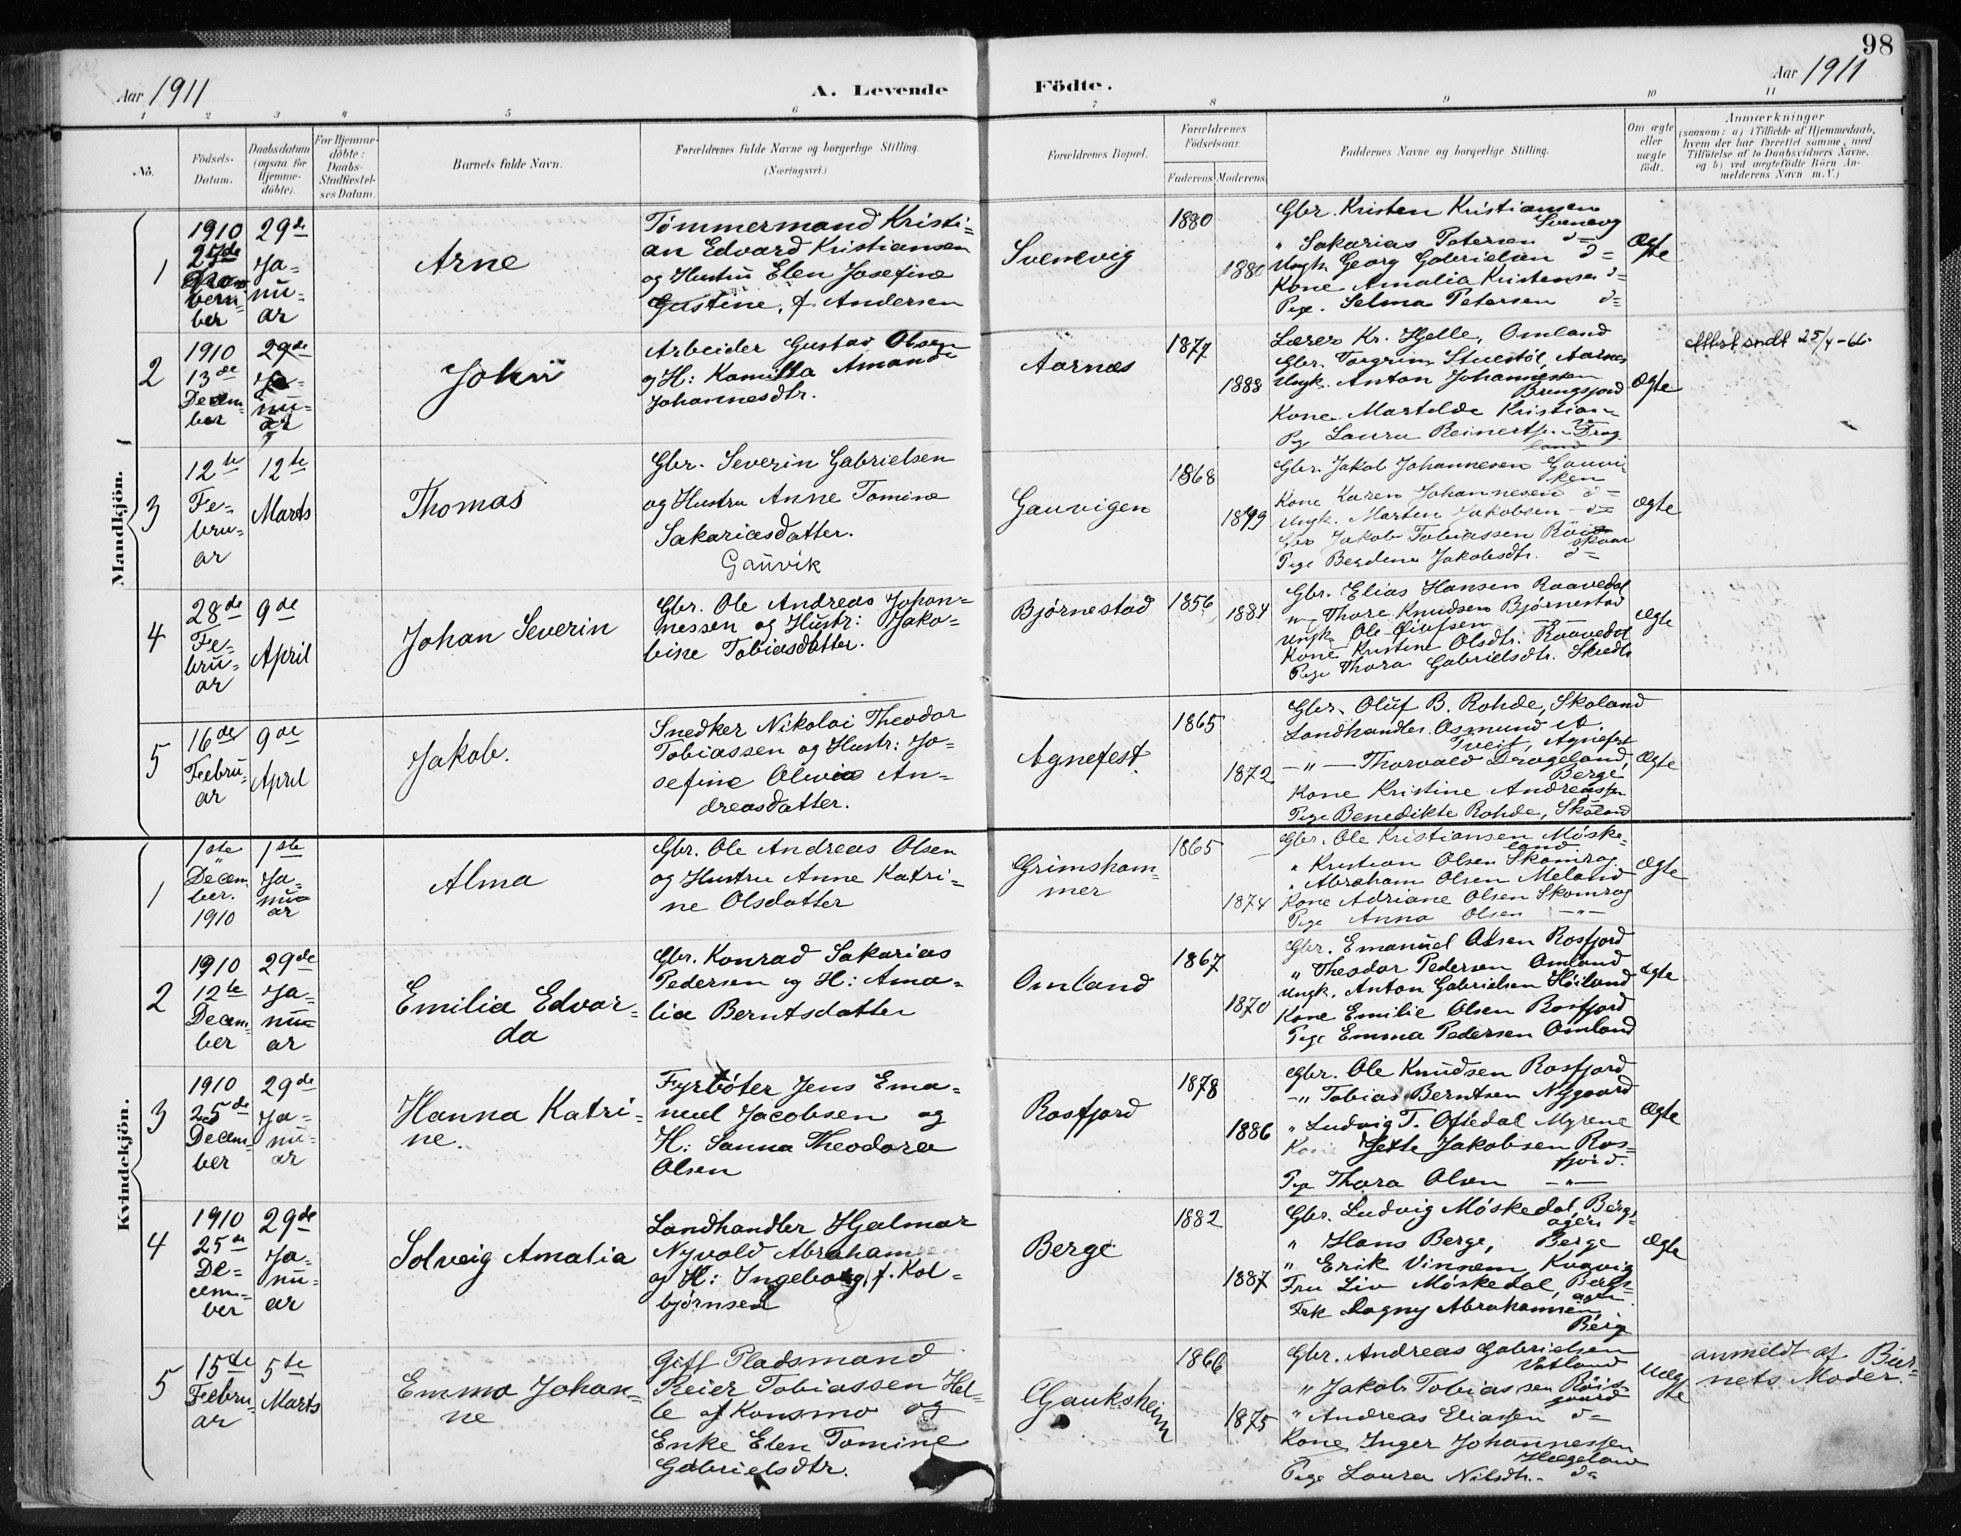 98
Aar 1911
A. Levende
Födte.
Aar 1911
1 2 3 4 5 6 7 8 9 10 11
No.
Födsels-
Datum.
Daabsdatum
(ogsaa for
Hjemme-
döbte).
For Hjemme-
döbte:
Daabs-
Stadfæstel-
ses Datum.
Barnets fulde Navn.
Forældrenes fulde Navne og borgerlige Stilling.
(Næringsvei.)
Forældrenes Bopæl.
Forældrenes
Födselsaar.
Faderens. Moderens.
Faddernes Navne og borgerlige Stilling.
Om ægte
eller
uægte
födt.
Anmærkninger
(saasom: a) i Tilfælde af Hjemmedaab,
hvem der har forrettet samme, med
Tilföielse af to Daabsvidners Navne,
og b) ved uægtefödte Börn An-
melderens Navn m. V.)
Mandkjön.
1
1910
27de
Novem-
ber
29de
Ja-
nu-
ar
Arne
Tømmermand Kristi-
an Edvard Kristiansen
og Hustru Elen Josefine
Gustine, f. Andersen
Svenevig
1880
1880
Gbr. Kristen Kristiansen
Svenevig
" Sakarias Petersen d=
Ungk. Georg Gabrielsen d=
Kone Amalia Kristensen d=
Pige. Selma Petersen d=
Ægte
2
1910
13de
Decem-
ber
29de
Ja-
nu-
ar
John
Arbeider Gustav Olsen
og H: Kamilla Amanda
Johannesdtr.
Aarnæs
1877
1888
Lærer Kr. Hjelle, Omland
Gbr. Torgrim Stuestøl, Aarnes
Ungk. Anton Johannessen
Bringsjord
Kone Martelde Kristian-
Pg Laura Reinertsen
Ægte
Attest sndt 25/4-66.
3
12te
Fe-
bru-
ar
12te
Marts
Thomas
Gbr. Severin Gabrielsen
og Hustru Anne Tomine
Sakariasdatter.
Gauvik
Gauvigen
1868
1879
Gbr. Jakob Johannesen Gauvi-
ken
Kone Karen Johannesen d=
Ungk. Marten Jakobsen d=
Gbr Jakob Tobiassen Röi
skaar
Pige Berdina Jakobsdtr. d=
Ægte
4
28de
Fe-
bru-
ar
9de
April
Johan Severin
Gbr. Ole Andreas Johan-
nessen og Hustr: Jako-
bine Tobiasdatter.
Bjørnestad
1856
1884
Gbr. Elias Hansen Raavedal
" Thore Knudsen Bjørnestad
Ungk. Ole Olufsen
Kone Kristine Olsdtr. Raavedal
Pige Thora Gabrielsdtr.
Ægte
5
16de
Febru-
ar
9de
April
Jakob.
Snedker Nikolai Theodor
Tobiassen og Hustr: Jo-
sefine Olivia An-
dreasdatter.
Agnefest
1865
1872
Gbr. Oluf B. Rohde, Skoland
Landhandler. Osmund A.
Tveit, Agnefest
—"— Thorvald Drageland,
Berge
Kone Kristine Andreassen
Pige Benedikte Rohde, Skoland
Ægte
Kvindekjön.
1
1ste
Decem-
ber.
1910
1ste
Ja-
nu-
ar
Alma
Gbr. Ole Andreas Olsen
og Hustru Anne Katri-
ne Olsdatter
Grimsham-
mer
1865
1874
Gbr. Ole Kristiansen Møske-
land
" Kristian Olsen Skomrag
" Abraham Olsen Meland
Kone Adriane Olsen Skomrag
Pige Anna Olsen —"—
Ægte
2
1910
12te
Decem-
ber
29de
Ja-
nu-
ar
Emilia Edvar-
da
Gbr. Konrad Sakarias
Pedersen og H: Ama-
lia Berntsdatter
Omland
1867
1870
Gbr. Emanuel Olsen Rosfjord
" Theodor Pedersen Omland
Ungk. Anton Gabrielsen Höiland
Kone Emilie Olsen Rosfjord
Pige Emma Pedersen Omland
Ægte
3
1910
25de
Decem-
ber
29de
Ja-
nu-
ar
Hanna Katri-
ne.
Fyrbøter Jens Ema-
nuel Jacobsen og
H: Sanna Theodora
Olsen
Rosfjord
1878
1886
Gbr. Ole Knudsen Rosfjord
—" Tobias Berntsen Nygaard
" Ludvig T. Oftedal Myrene
Kone Jette Jakobsen Ros-
fjord.
Pige Thora Olsen —"—
Ægte
4
1910
25de
De-
cem-
ber
29de
Ja-
nu-
ar
Solveig Amalia
Landhandler Hjalmar
Nyvold Abrahamsen
og H: Ingeborg, f. Kol-
bjørnsen
Berge
1882
1887
Gbr. Ludvig Møskedal, Bergs-
ager
" Hans Berge, Berge
" Erik Vinnem, Kvavig
Fru Liv Møskedal, Bergs-
ager
Frk Dagny Abrahamsen,
Berge
Ægte
5
15de
Febru-
ar
5te
Marts
Emma Johan-
ne
Gift Pladsmand
Reier Tobiassen Hel-
le af Konsmo og
Enke Elen Tomine
Gabrielsdtr.
Gauksheim
1866
1875
Gbr. Andreas Gabrielsen
Vatland
" Jakob Tobiassen Röis-
gaard
" Andreas Eliassen d=
Kone Inger Johannessen
Hægeland
Pige Laura Nilsdtr. d=
Uæg-
te
anmeldt af Bar-
nets Moder.